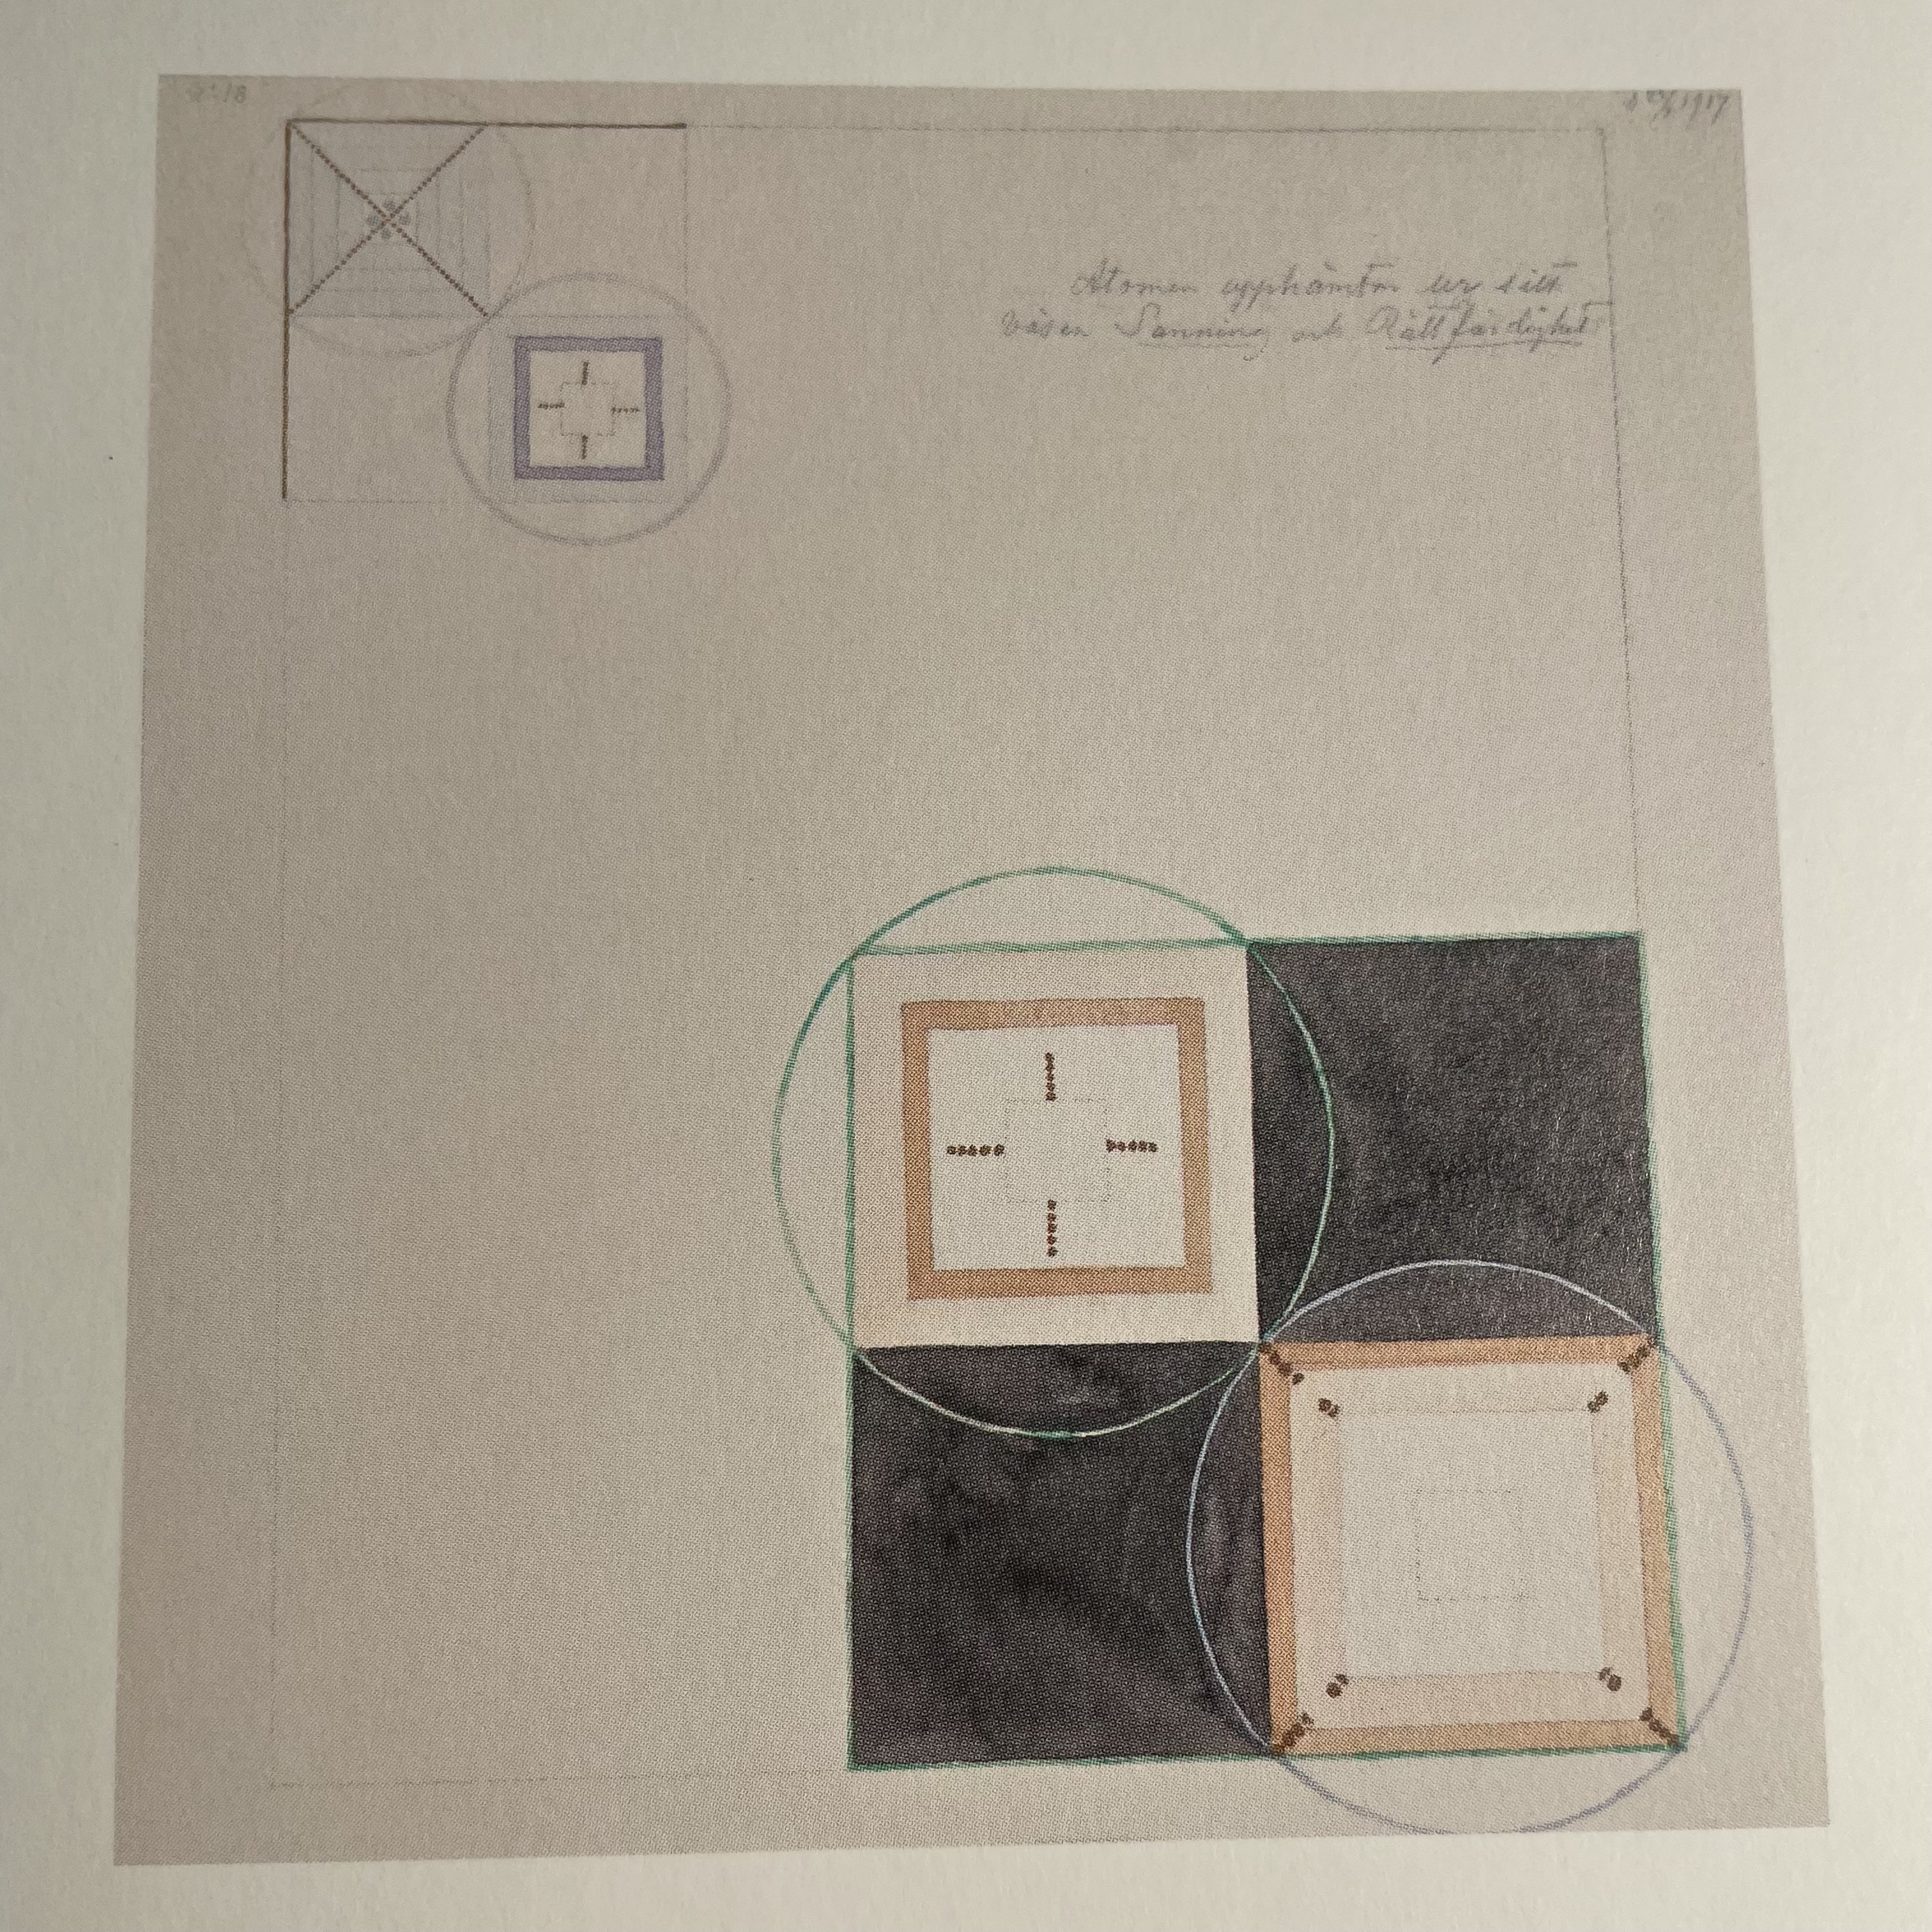 1917
Atomen upphämtar ur sitt
väsen Sanning och Rättfärdighet